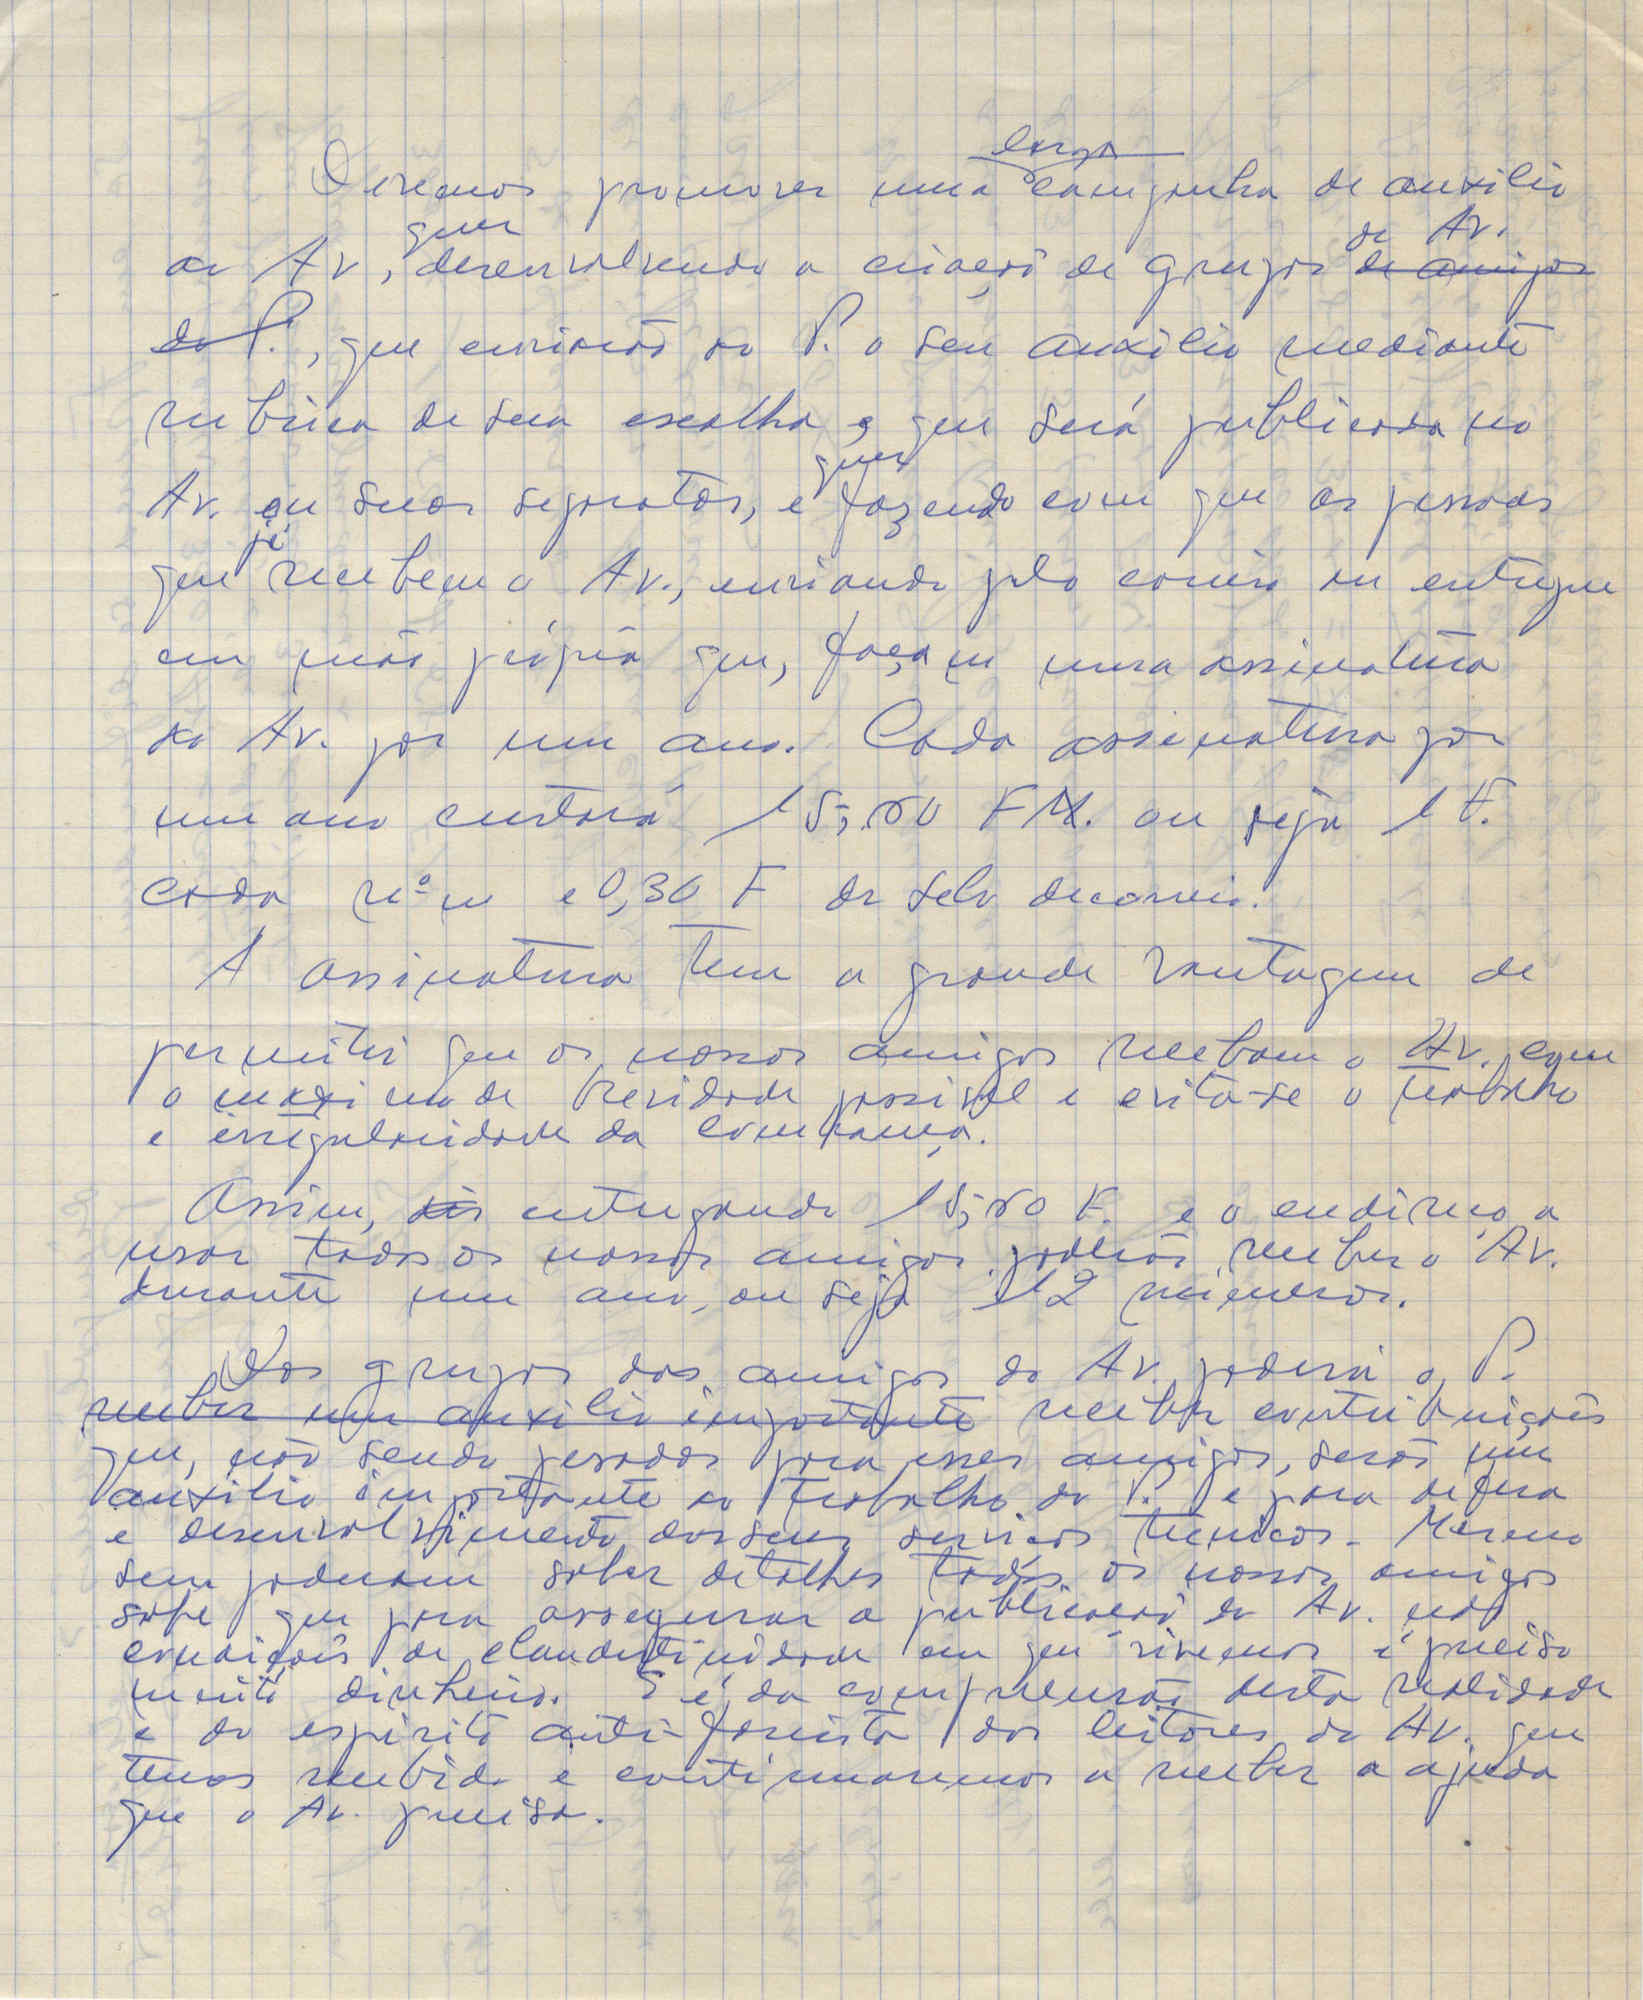 larga
Devemos promover uma campanha de auxílio
quer de Av.
ao Av, desenvolvendo a criação de grupos de amigos
do P., que enviarão ao P. o seu auxílio mediante
rubrica de sua escolha e que será publicada no
quer
Av. ou suas separatas, e fazendo com que as pessoas
já
que recebem o Av., enviando pelo correio ou entregue
em mão própria que, façam uma assinatura
do Av. por um ano. Cada assinatura por
um ano custará 15,60 F. ou seja 1 F.
cada nº e 0,30 F de selo de correio.
A assinatura tem a grande vantagem de
permitir que os nossos amigos recebam o Av. com
o maximo de brevidade possivel e evita-se o trabalho
e irregularidade da cobrança.
Assim, entregando 15,60 F. e o endireço a
usar todos os nossos amigos poderão receber o Av.
durante um ano, ou seja 12 números.
Dos grupos dos amigos do Av. poderá o P.
receber um auxilio importante receber contribuições
que, não sendo pesadas para esses amigos, serão um
auxílio importante ao trabalho do P. e para defesa
e desenvolvimento dos seus serviços técnicos. Mesmo
sem poderem saber detalhes todos os nossos amigos
sabe que para assegurar a publicação do Av. nas
condições de clandestinidade em que vivemos é preciso
muito dinheiro. E é da compreensão desta realidade
e do espírito anti-fascista dos leitores do Av. que
temos recebido e continuaremos a receber a ajuda
que o Av. precisa.